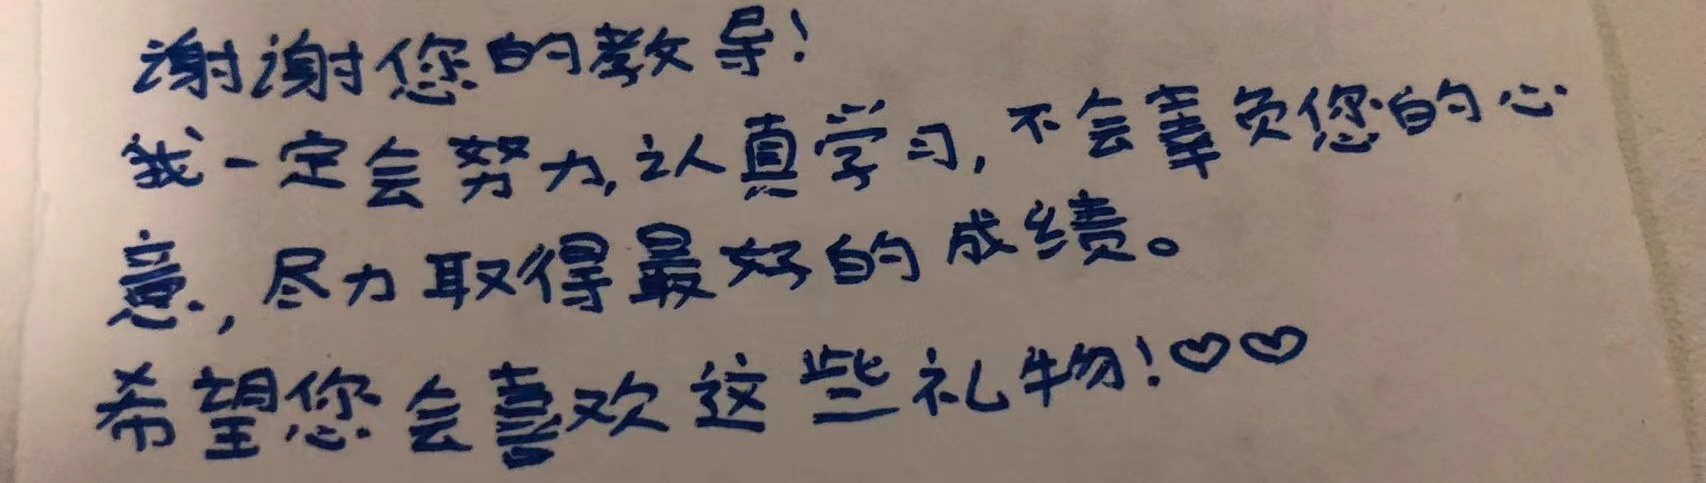 谢谢您的教导!
我一定会努力,认真学习,不会辜负您的心
意,尽力取得最好的成绩。
希望您会喜欢这些礼物!♡♡